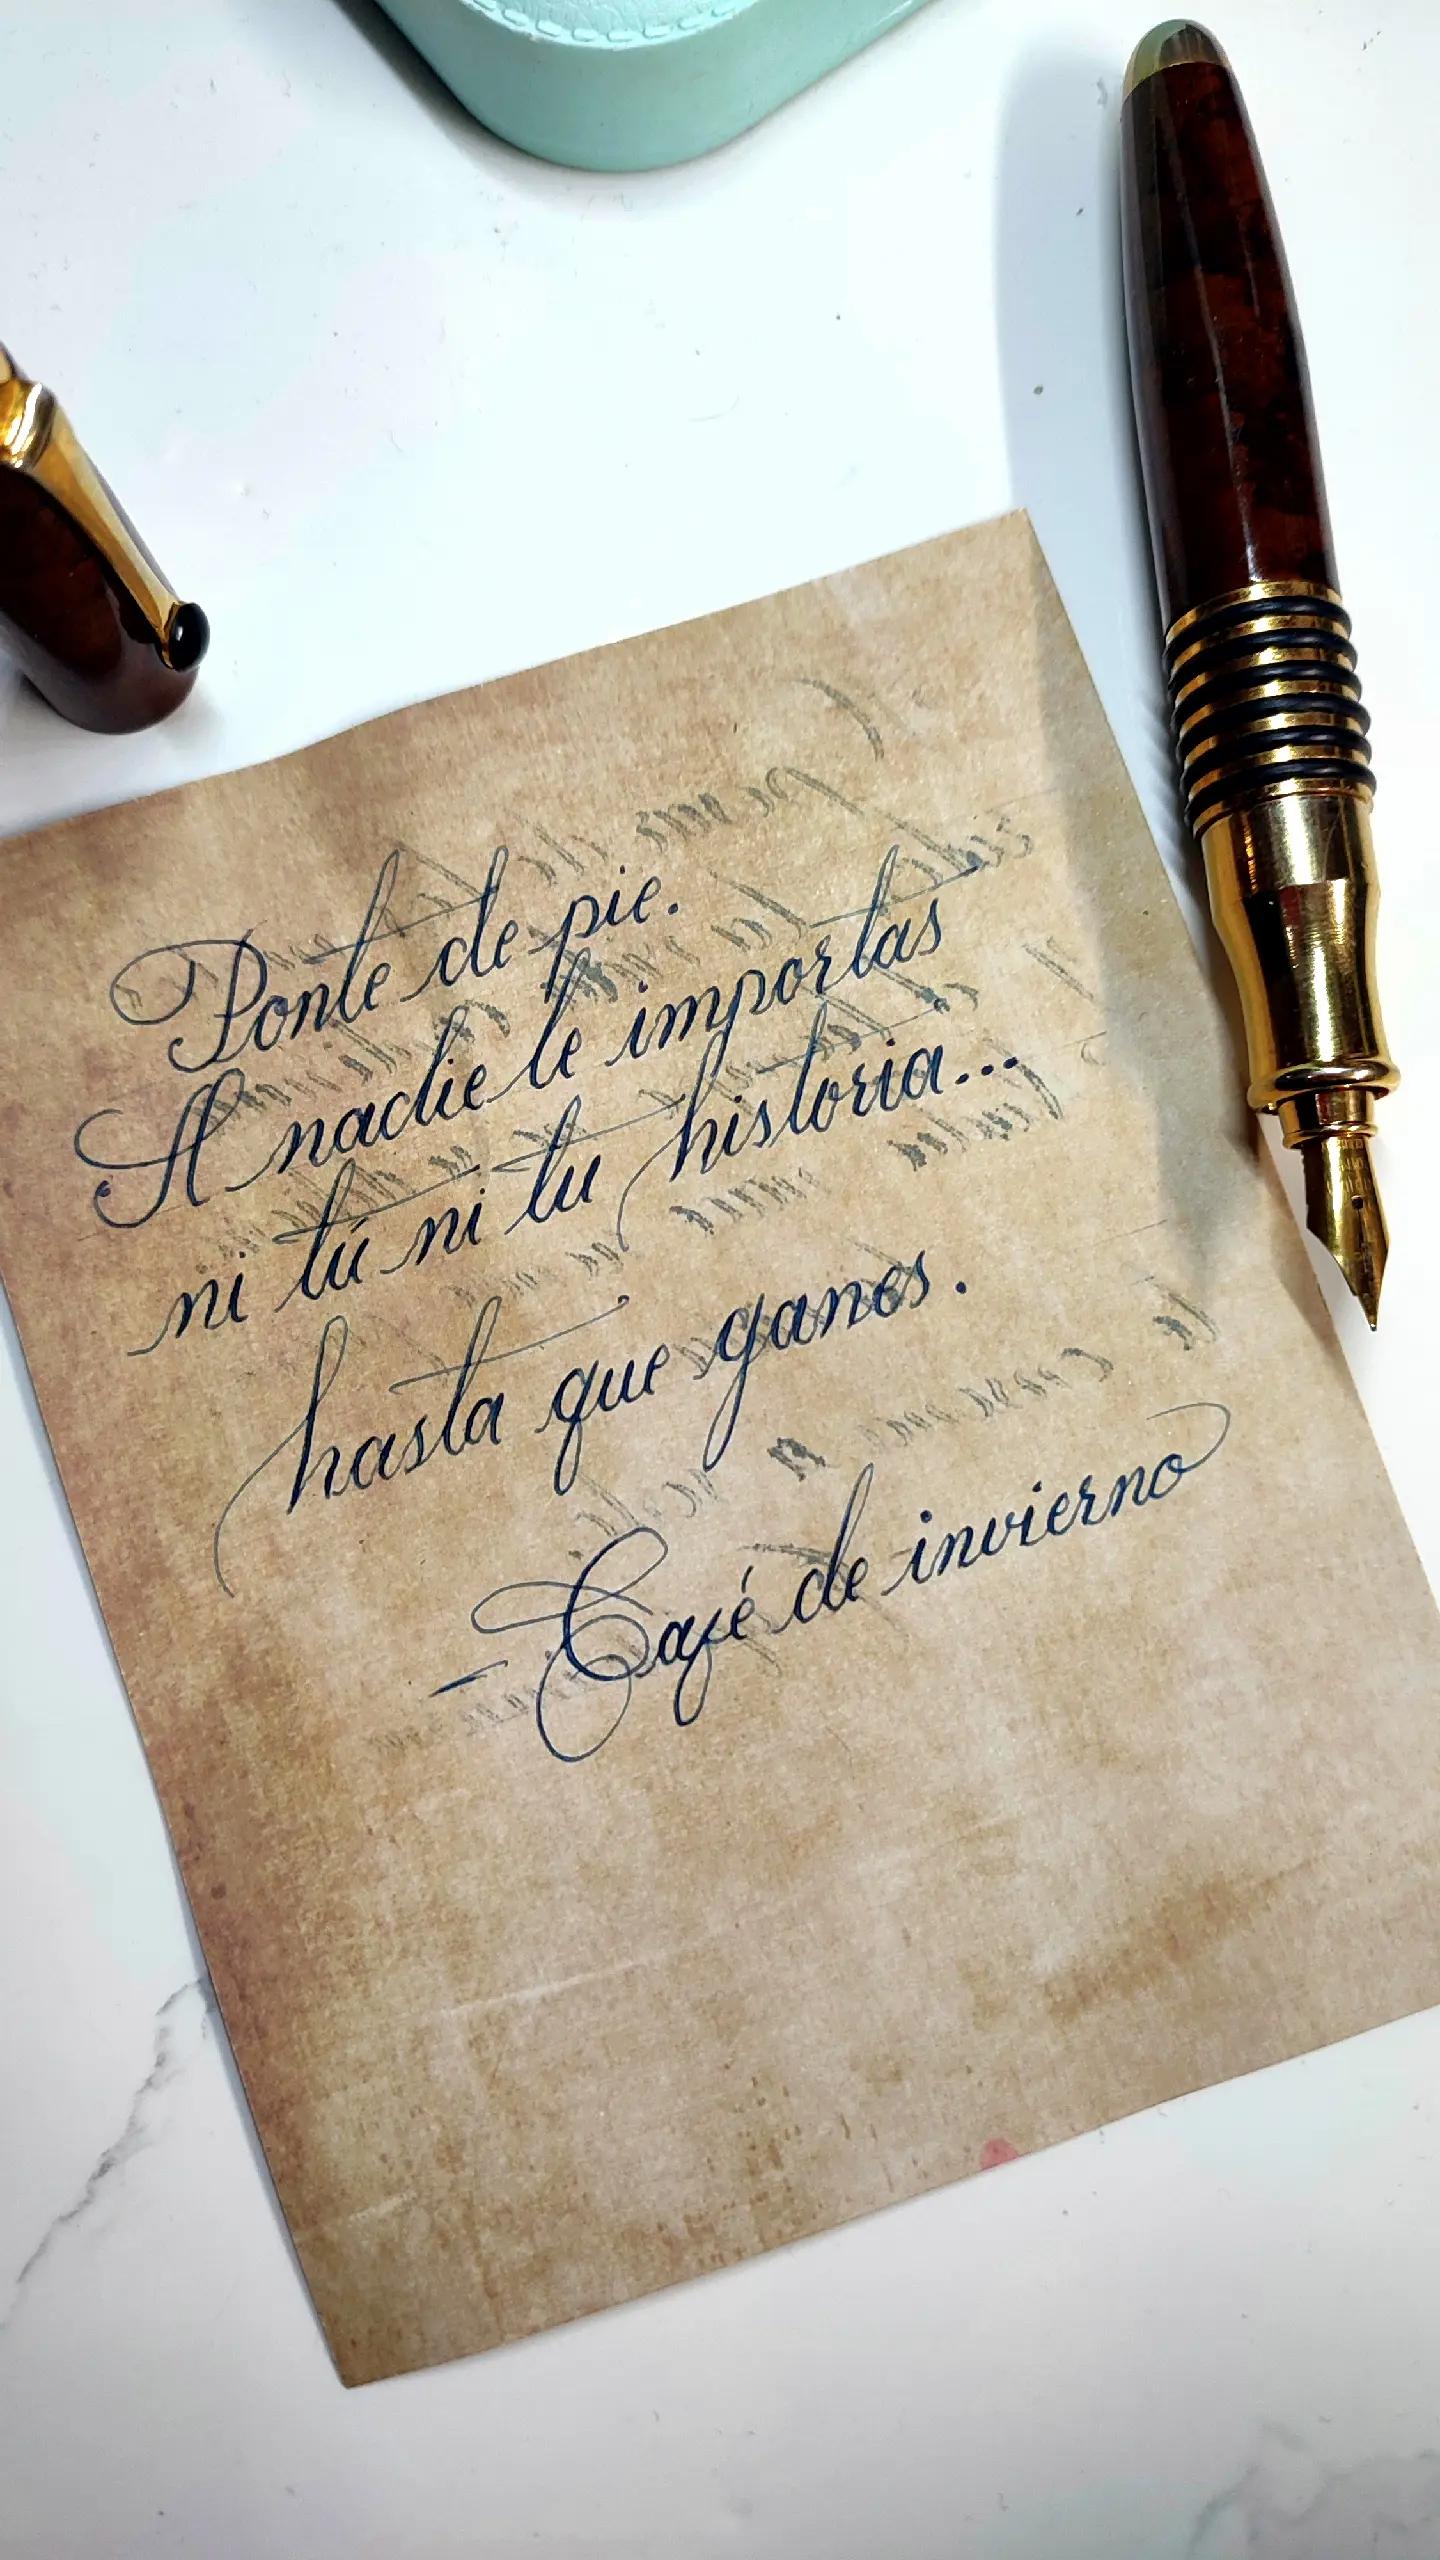 Ponte de pie.
A nadie le importas
ni tú ni tu historia...
hasta que ganes.
-Café de invierno